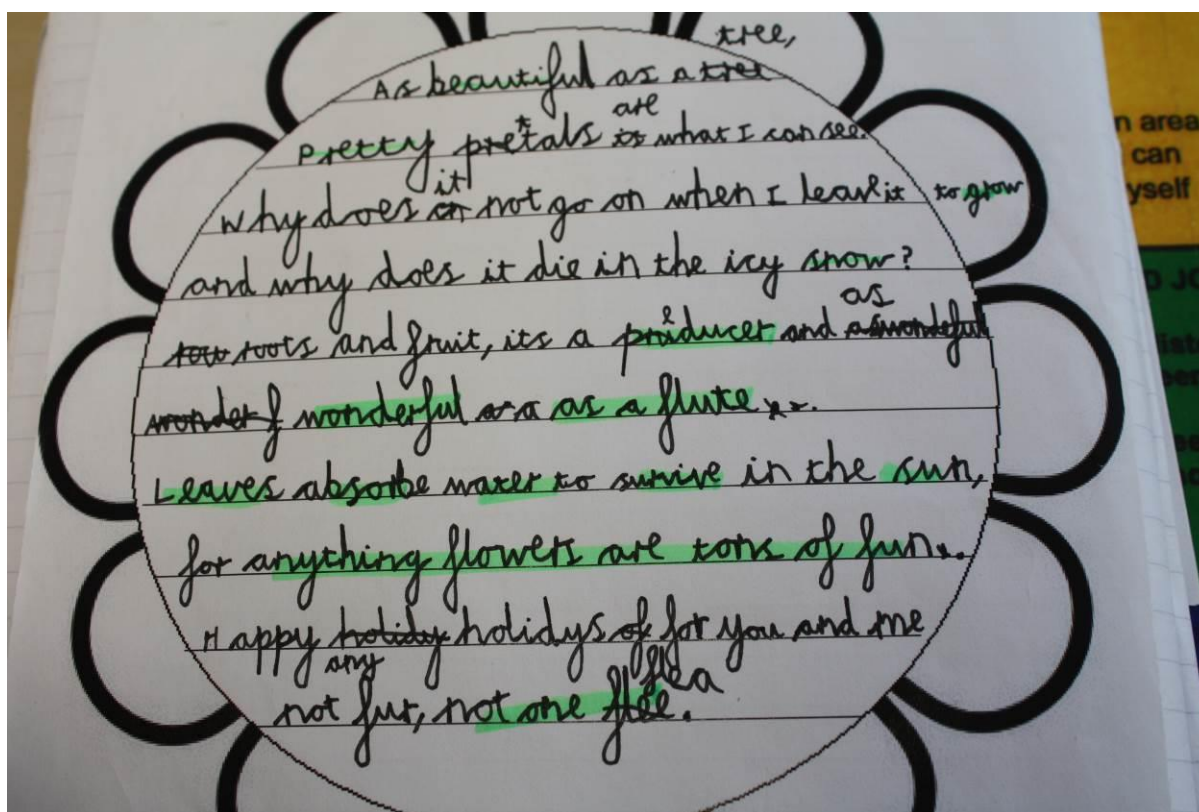 tree,
As beautiful as a tree
are
Pretty pretals is what I can see.
it
Why does it not go on when I leave it to grow
and why does it die in the icy snow?
as
row roots and fruit, its a producer and aswondeful
wonderf wonderful as a as a flute.
Leaves absorbe water to survive in the sun,
for anything flowers are tons of fun.
Happy holidy holidys of for you and me
any flea
not fur, not one flee.
n area
can
yself